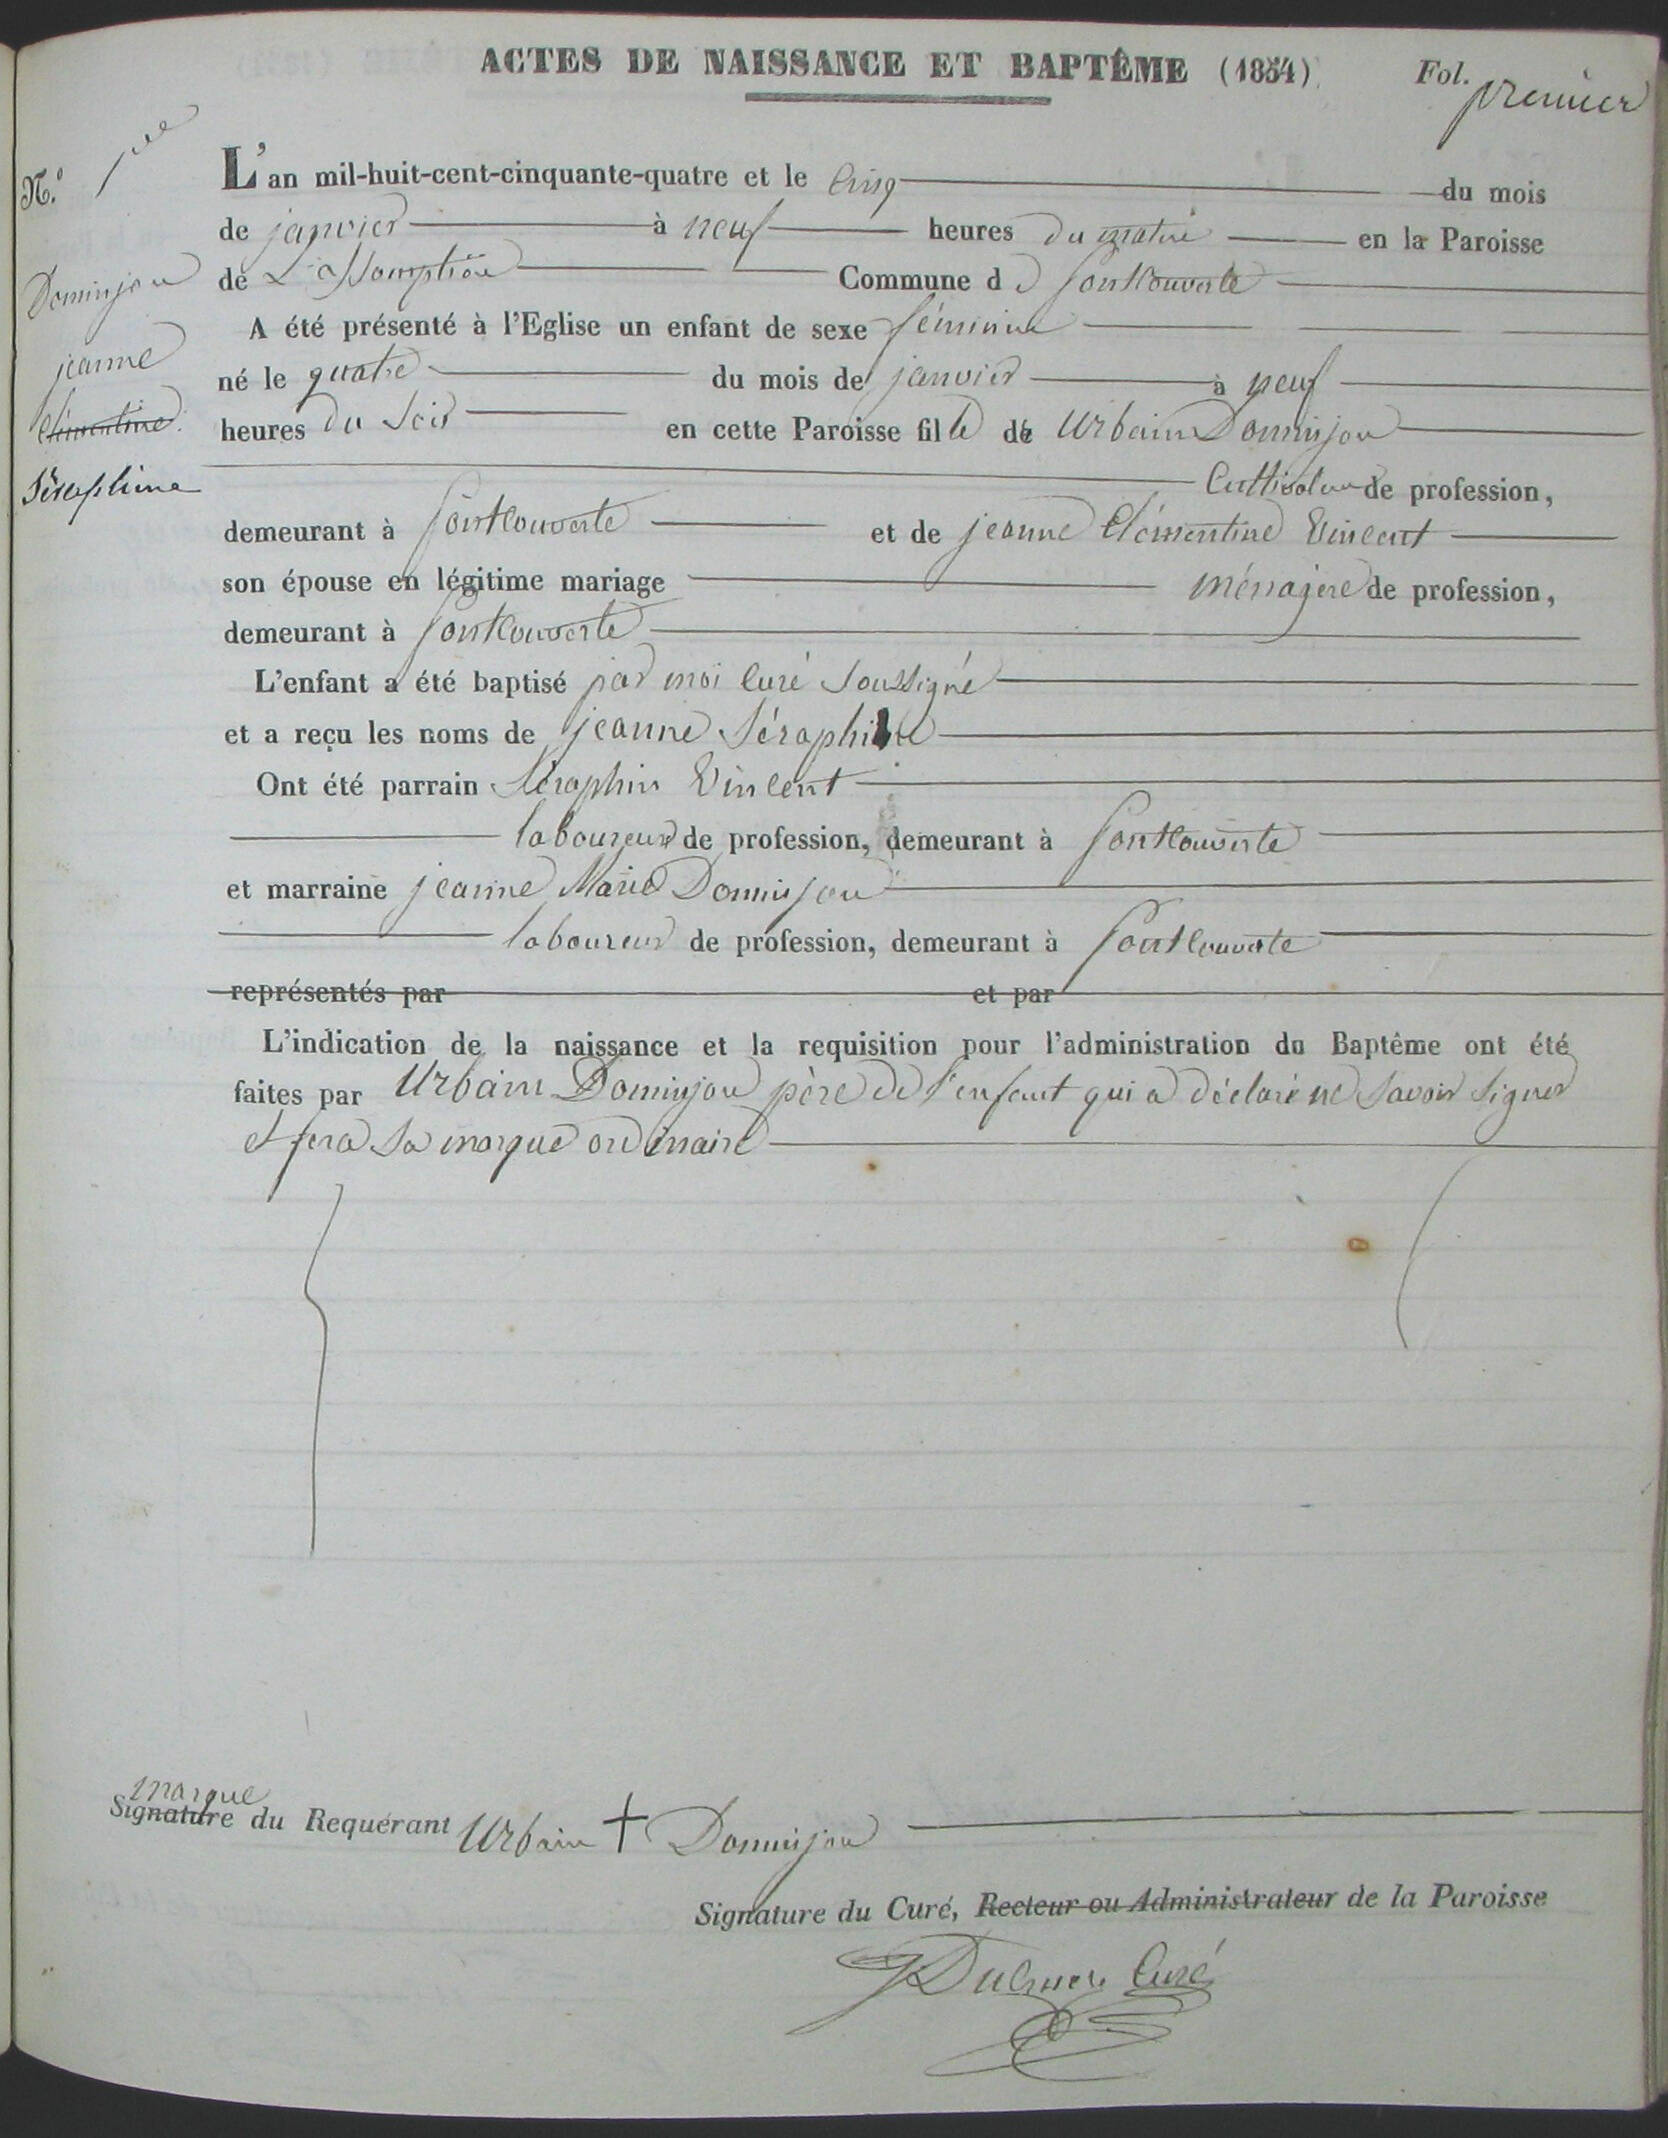 ACTES DE NAISSANCE ET BAPTÊME (1854) Fol. premier
N.º 1er
Dominjou
jeanne
Clémentine
Séraphine
L'an mil-huit-cent-cinquante-quatre et le cinq du mois
de janvier à neuf heures du matin en la Paroisse
de L'assomption Commune d Fontcouverte
A été présenté à l'Eglise un enfant de sexe féminin
né le quatre du mois de janvier à neuf
heures du soir en cette Paroisse fille de Urbain Dominjou
Cultivateur de profession,
demeurant à Fontcouverte et de jeanne Clémentine Vincent
son épouse en légitime mariage ménagère de profession,
demeurant à Fontcouverte
L'enfant a été baptisé par moi Curé soussigné
et a reçu les noms de jeanne Séraphine
Ont été parrain Séraphin Vincent
laboureur de profession, demeurant à Fontcouverte
et marraine jeanne Marie Dominjou
laboureur de profession, demeurant à Fontcouverte
représentés par et par
L'indication de la naissance et la requisition pour l'administration du Baptême ont été
faites par Urbain Dominjou père de l'enfant qui a déclaré ne savoir signer
et fera sa marque ordinaire
marque
Signature du Requérant Urbain + Dominjou
Signature du Curé, Recteur ou Administrateur de la Paroisse
Curé